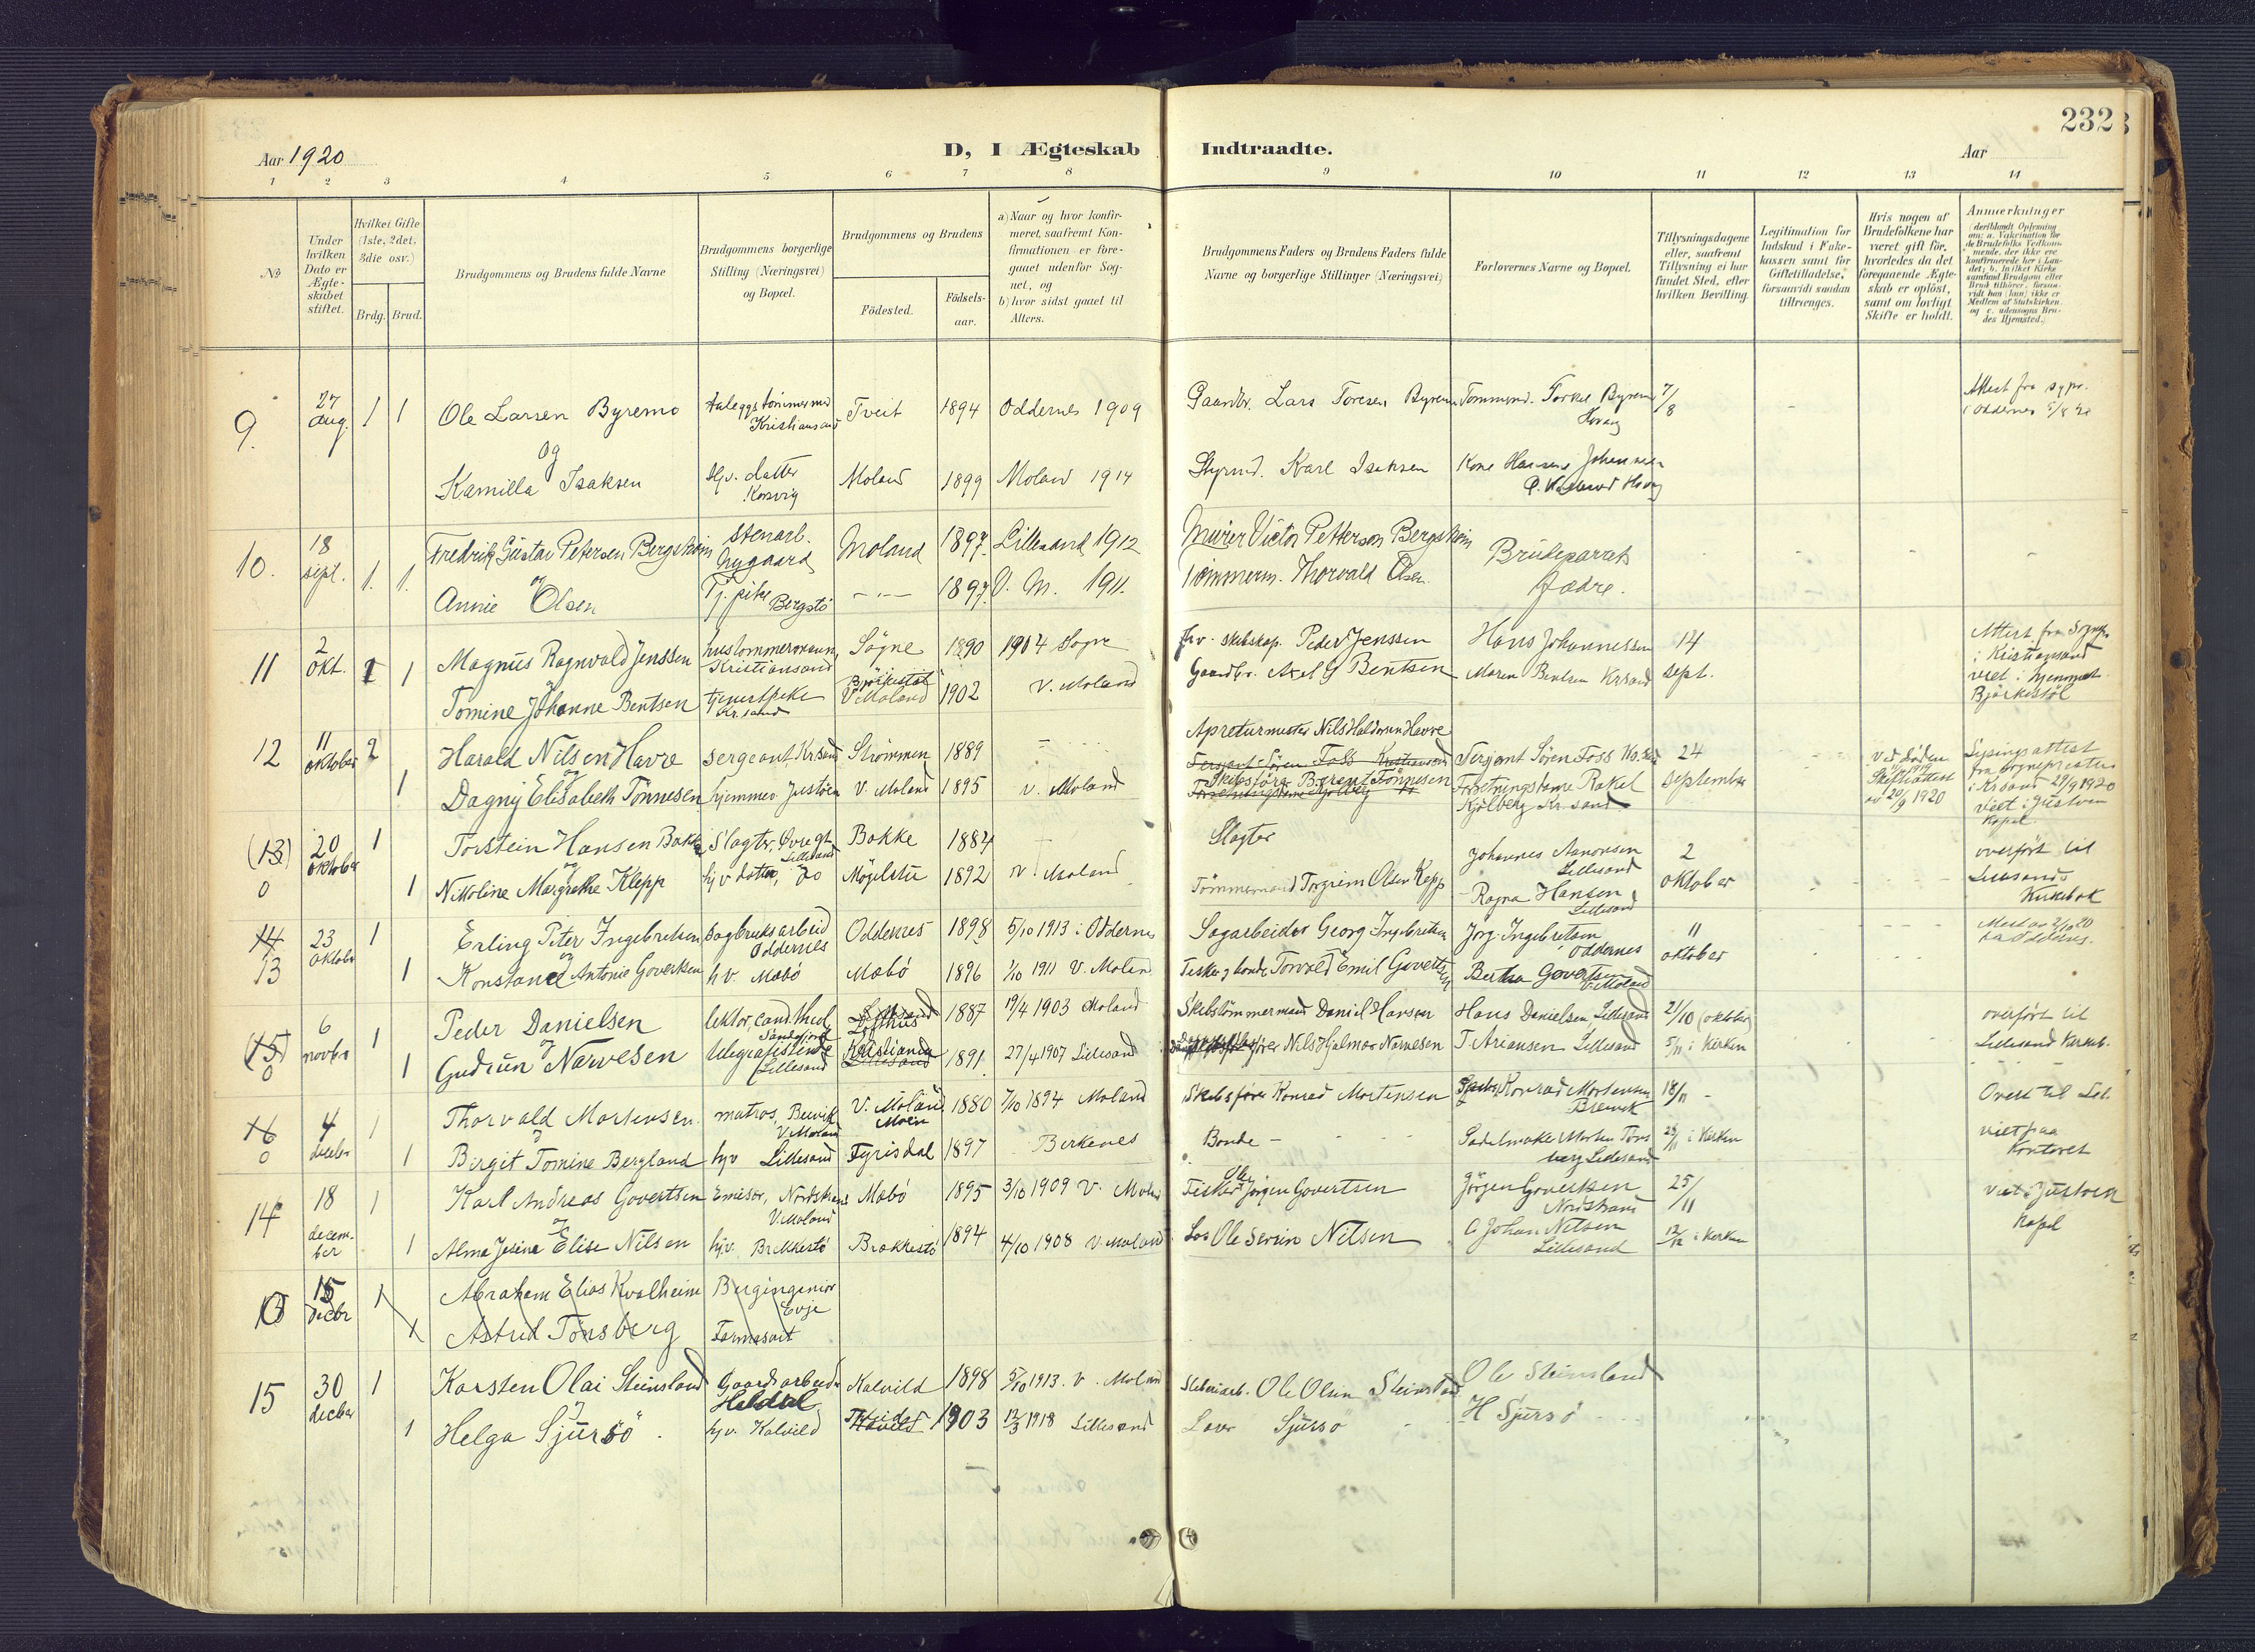 232
Aar 1920
D, I Ægteskab Indtraadte.
Aar
1 2 3 4 5 6 7 8 9 10 11 12 13 14
No
Under hvilken Dato er Ægteskabet stiftet.
Hvilket Gifte (1ste, 2det, 3die osv.)
Brdg. Brud.
Brudgommens og Brudens fulde Navne
Brudgommens borgerlige Stilling (Næringsvei) og Bopæl.
Brudgommens og Brudens
Födested.
Födselsaar.
a) Naar og hvor konfirmeret, saafremt Konfirmationen er foregaaet udenfor Sognet, og
b) hvor sidst gaaet til Alters.
Brudgommens Faders og Brudens Faders fulde Navne og borgerlige Stillinger (Næringsvei)
Forlovernes Navne og Bopæl.
Tillysningsdagene eller, saafremt Tillysning ei har fundet Sted, efter hvilken Bevilling.
Legitimation for Indskud i Enkekassen samt for Giftetilladelse, forsaavidt saadan tiltrænges.
Hvis nogen af Brudefolkene har været gift för, hvorledes da det foregaaende Ægteskab er oplöst, samt om lovligt Skifte er holdt.
Anmerkninger
9. 27 aug. 1 1 Ole Larsen Byremo Tveit 1894 Oddernes 1909 Gaardbr. Lars Toresen Byremo Tommerm. Torkel Byremo 7/8 Attest fra
Kristiansand Oddernes
og
Kamilla Isaksen Hjv. datter Moland 1899 Moland 1914 Styrmd. Karl Isaksen
Kosvig
10. 18 sept. 1. 1. Fredrik Gustav Petersen Bergström Stenarb. Nygaard Moland 1897. Lillesand 1912 Murer Victor Petterson Bergström Brudeparrets
og
Annie Olsen Tj. pike Bergstö 1897. V. M. 1911. Tömmerm. Thorvald Olsen. fædre.
11 2 okt. 1 1 Magnus Ragnvald Jenssen hustommermann, Kristiansand Søgne 1890 1904 Sogne Peder Jenssen Hans Johannessen 14 Attest fra Sognepr.
Tomine Johanne Bentsen tjenestpike Kr.sand Bjørkestøl V Moland 1902 V. Moland Gaardbr. Axel G Bentsen Maren Bentsen Krsand sept. i Kristiansand
viet i hjemmet
Bjørkestøl
Apreturmester Nils Haldorsen Havre
12 11 oktober 2 Harald Nilsen Havre Sergeant, Krsand Strømmen 1889 Sersjant Søren Foss Kristiansand Serjant Søren Foss Kr.sand 24
og
1 Dagny Elisabeth Tønnesen hjemmev Justøen V. Moland 1895 V. Moland Skibsfører Berent Tønnesen Rakel september
Kjølberg Kr.sand
ved døden
1919
Skifteattest
av 20/9 1920
fra sogneprestens
i Krsand 29/9 1920
viet i Justøen
Kapel
(13) 0 20 oktober 1 Torstein Hansen Bakke Slagter, Øvregt Lillesand Bakke 1884 Slagter Johannes Aanonsen Lillesand 2 overført til
og
1 Nikoline Margrethe Klepp hjv datter, do Møglestu 1892 V Moland Tømmermand Torgrim Olsen Kepp Ragna Hansen, Lillesand oktober Lillesands
Kirkebok
14 13 23 oktober 1 Erling Peter Ingebretsen Sagbruksarbeid Oddernes Oddernes 1898 5/10 1913 i Oddernes Sagarbeider Georg Ingebretsen Jørg. Ingebretsen Oddernes 11
og
1 Konstance Antonie Govertsen hv. Mæbö Mæbö 1896 1/10 1911 V. Moland Fisker g bonde Torvald Emil Govertsen Bertha Govertsen V. Moland oktober
(15) 0 6 novbr 1 Peder Danielsen lektor, cand. theol. Sandefjord Lofthus 1887 19/4 1903 Moland Skibstömmermand Daniel Hansen Hans Danielsen Lillesand 21/10 (oktober) overført til
og
1 Gudrun Narvesen telegrafistinde Lillesand Kristiania 1891. 27/4 1907 Lillesand Nils Hjalmar Narvesen T. Ariansen Lillesand 5/11 i Kirken Lillesand Kirkeb.
16 0 4 1 Thorvald Mortensen. matros, V. Moland V. Moland Moen 1880 7/10 1894 Moland Skibsfører Konrad Mortensen Konrad Mortensen 18/11 Overf til Lil.
1 Birgit Tomine Bergland hjv Lillesand Fyrisdal 1897 Birkenes Bonde Sadelmaker Morten Tønsberg Lillesand i Kirken viet paa
Kontoret
14 18 december 1 Karl Andreas Govertsen Emisør, V. Moland Mæbö 1895 3/10 1909 V. Moland Fisker Jørgen Govertsen Jörgen Govertsen 25/11 Viet i Justøen
og
1 Alma Jesine Elise Nilsen hjv. Brekkestö Brækkestö 1894 4/10 1908 V. Moland Los Ole Severin Nilsen Johan Nilsen Lillesand 12/12 i Kirken Kapel
15 decbr 1 Abraham Elias Kvalheim Bergingeniør Evje
1 Astrid Tønsberg Farmasøit
15 30 decbr 1 Karsten Olai Steinsland Gaardsarbeider Heldal Kalvild 1898 5/10 1913. V. Moland Ole Olsen Steinsland Ole Steinsland
og
1 Helga Sjursö. hjv. Kalvild 1903 12/3 1918 Lillesand Sjursö H Sjursö